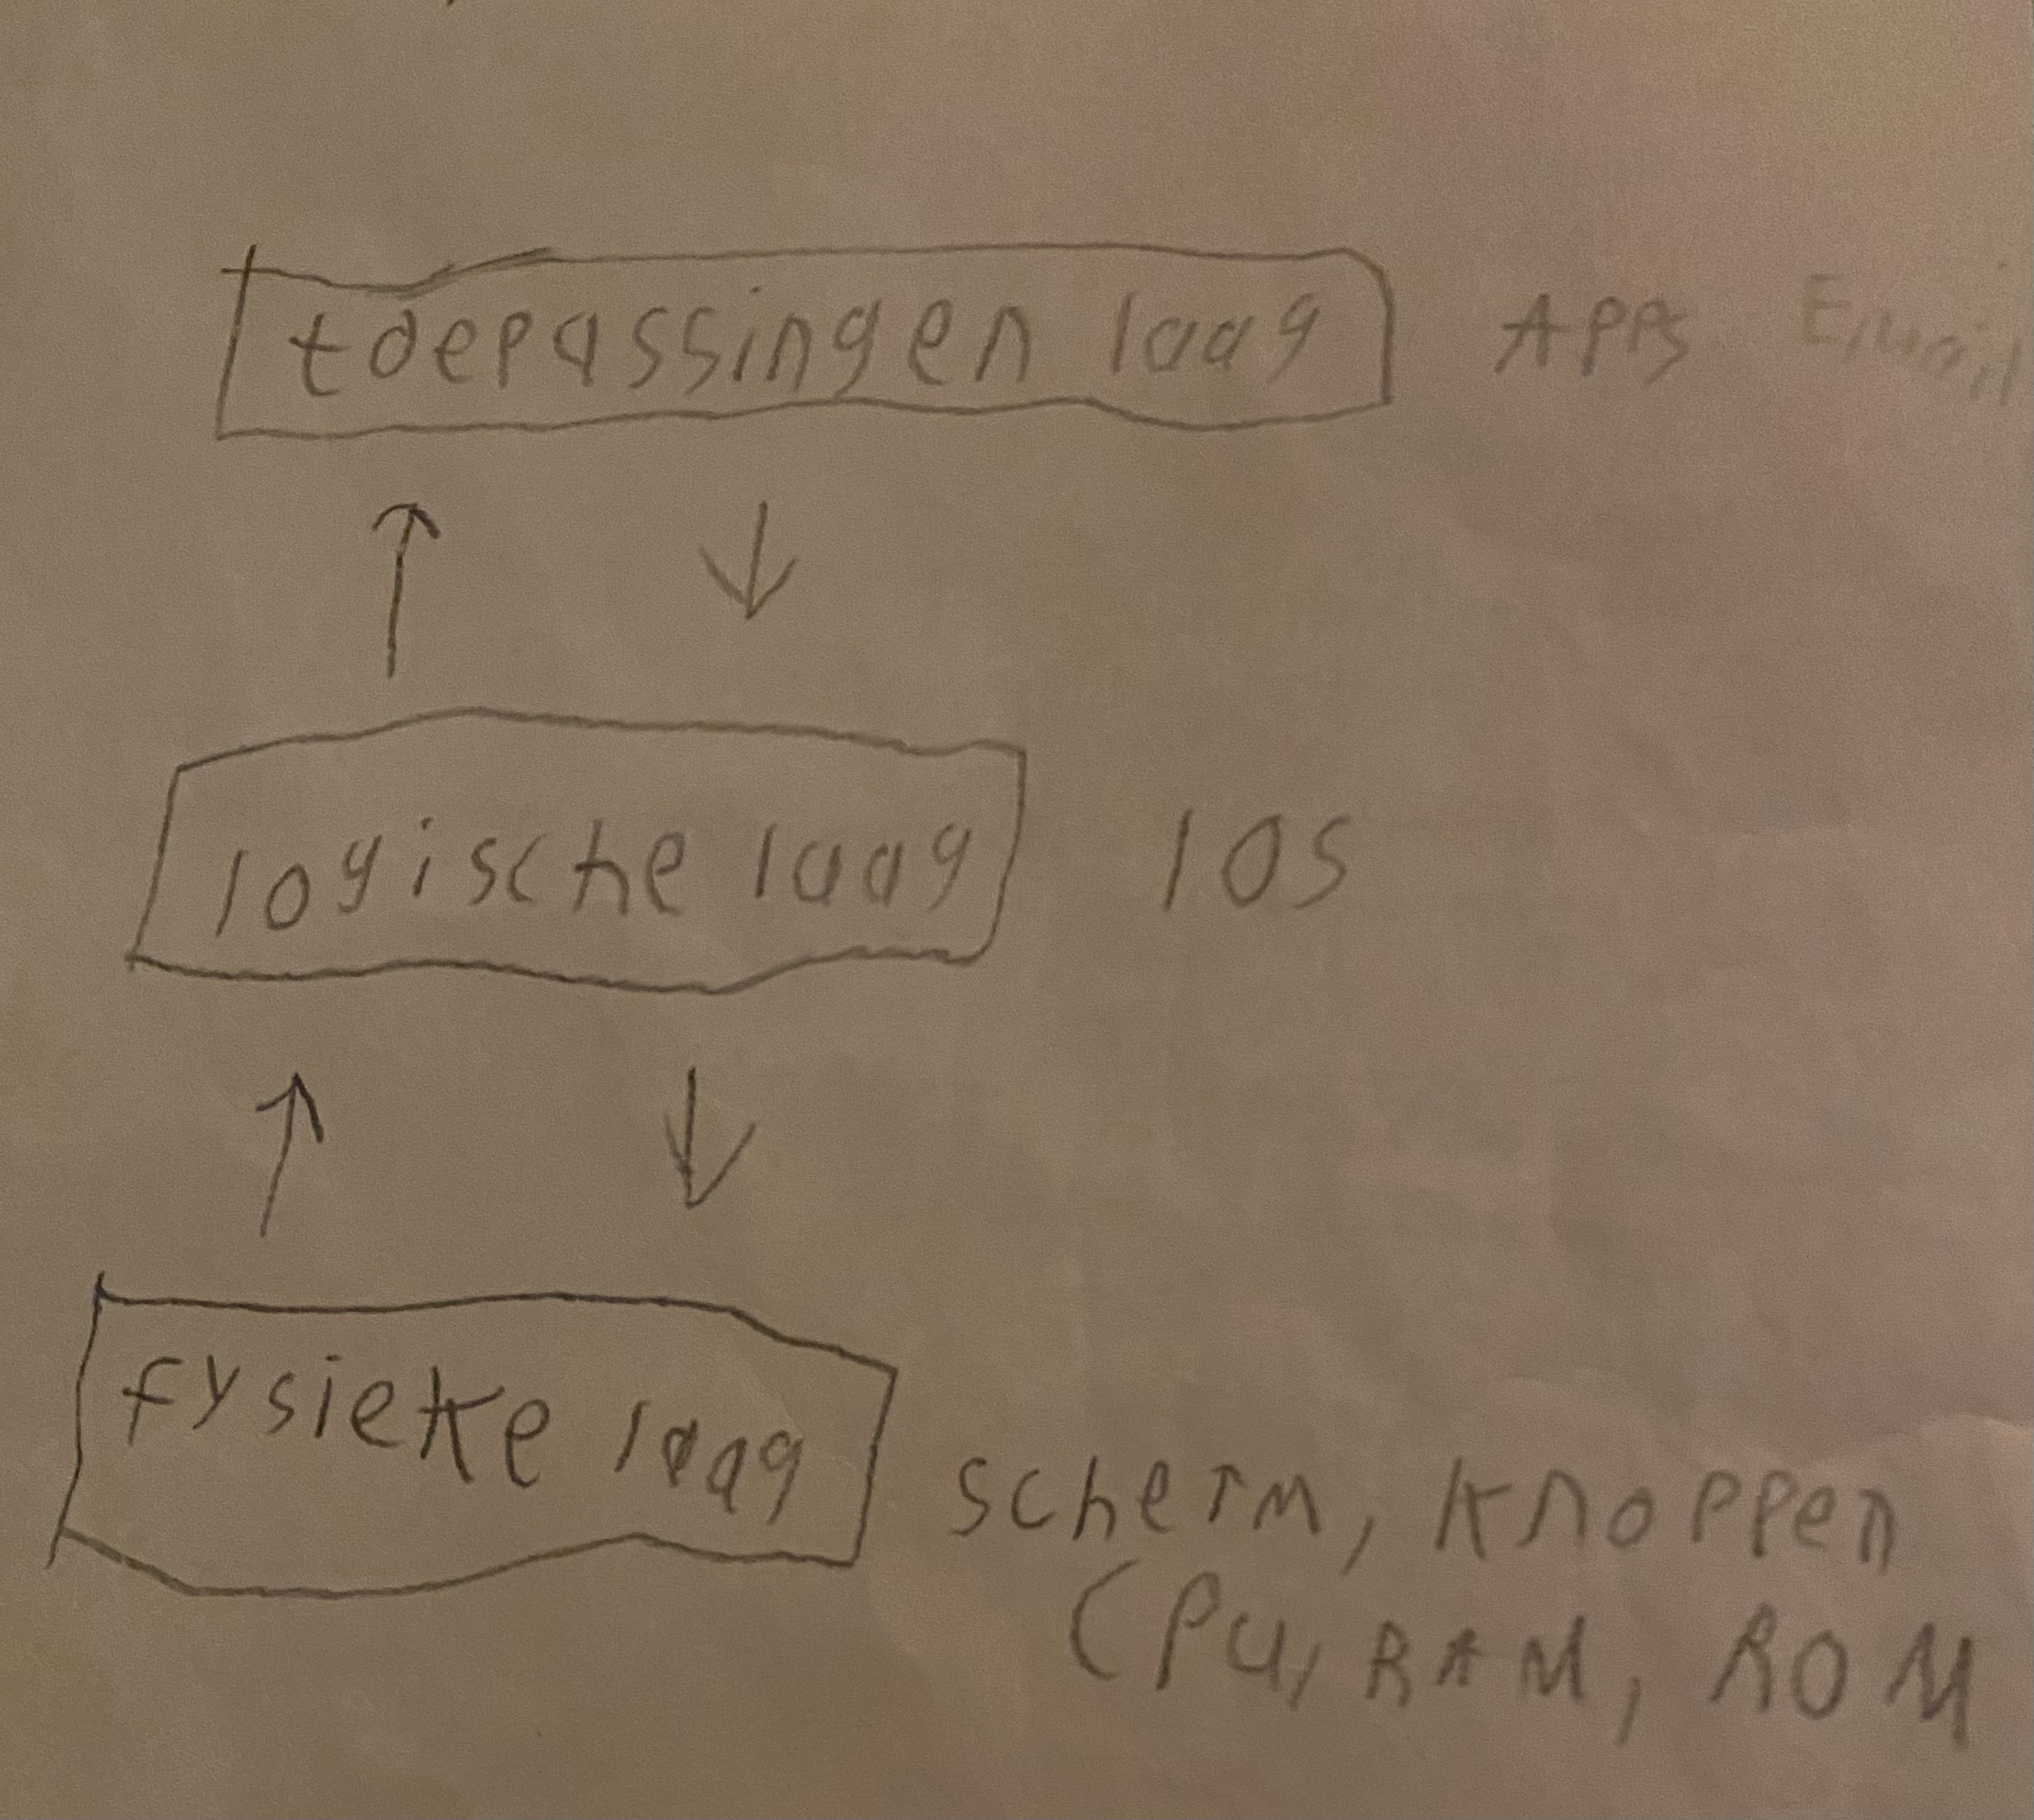 toepassingen laag APPS Email
logische laag IOS
fysieke laag scherm, knoppen
CPU, RAM, ROM